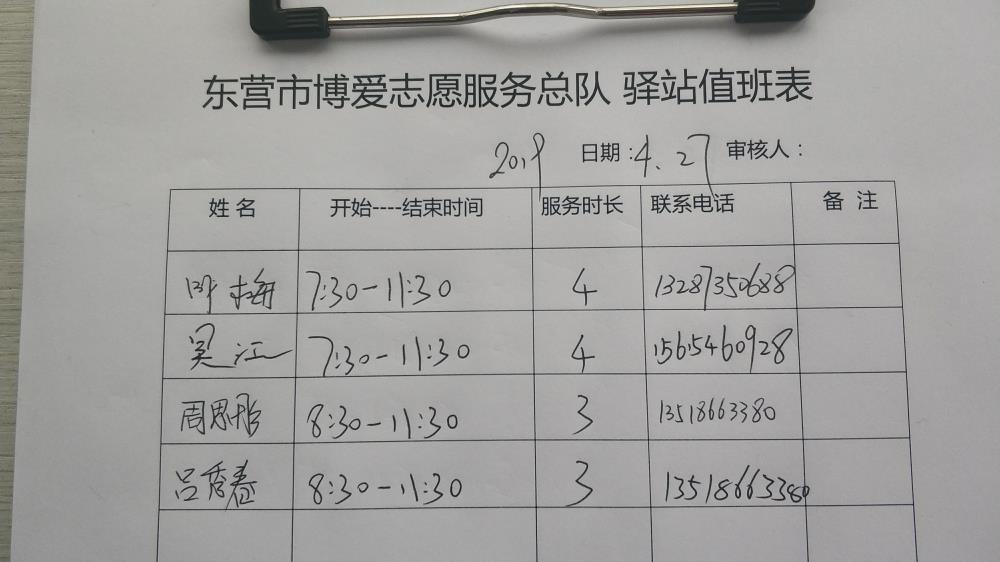 东营市博爱志愿服务总队 驿站值班表
2019 日期:4.27 审核人:
姓名 开始----结束时间 服务时长 联系电话 备注
叶梅 7:30-11:30 4 13287350688
吴江 7:30-11:30 4 15615460928
周思彤 8:30-11:30 3 13518663380
吕秀春 8:30-11:30 3 13518663380